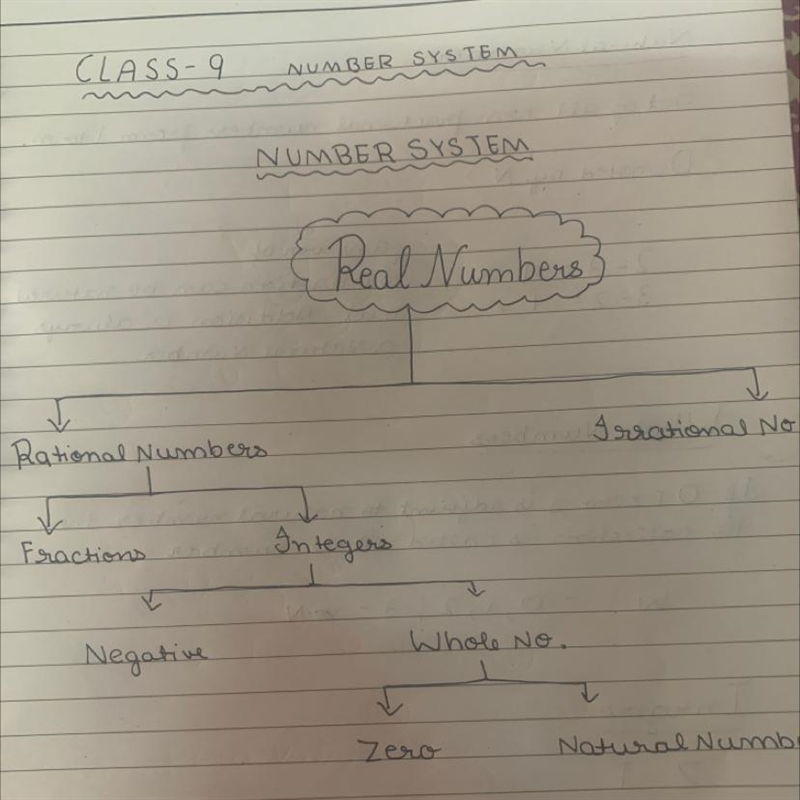 CLASS-9 NUMBER SYSTEM
NUMBER SYSTEM
Real Numbers
Rational Numbers
Irrational No
Fractions
Integers
Negative
Whole No.
Zero
Natural Numb